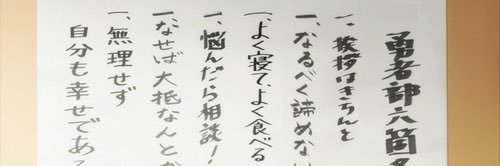 勇者部六箇
一、挨拶はきちんと
一、なるべく諦めない
一、よく寝て、よく食べる
一、悩んだら相談！
一、なせば大抵なんとか
一、無理せず
自分も幸せである